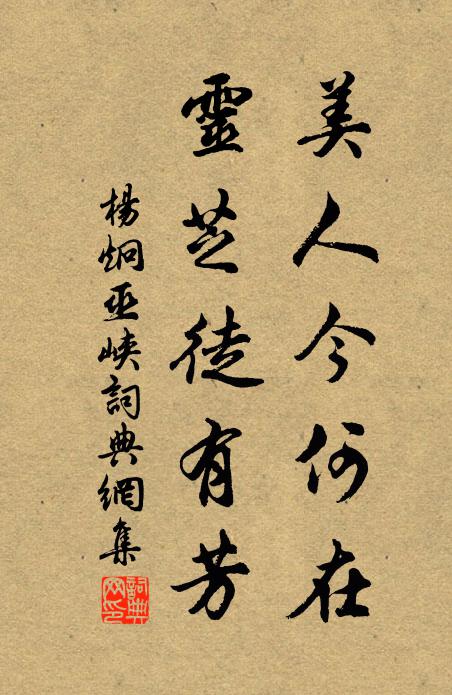 美人今何在
靈芝徒有芳
楊炯巫峽詞典網集
詞典網印